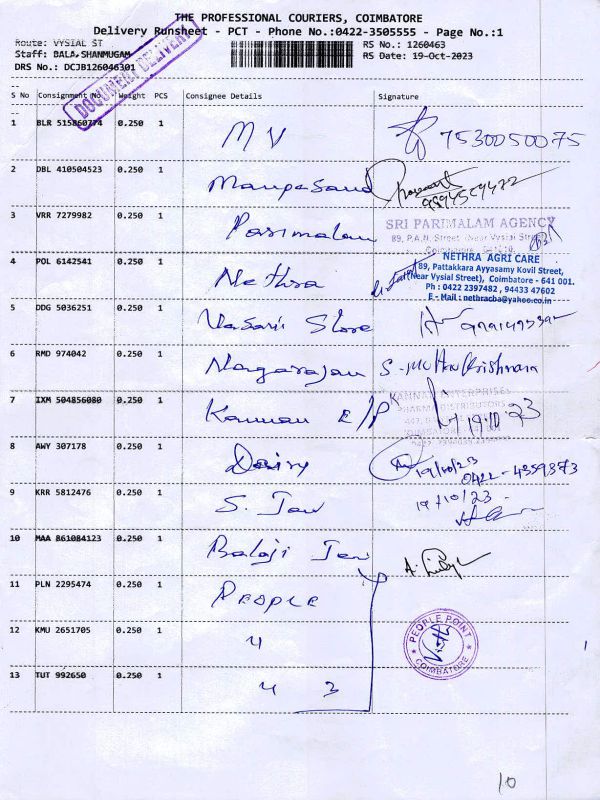 THE PROFESSIONAL COURIERS, COIMBATORE
Delivery Runsheet - PCT - Phone No.:0422-3505555 - Page No.:1
Route: VYSIAL ST
Staff: BALA SHANMUGAM
DRS No.: DCJB126046301
RS No.: 1260463
RS Date: 19-Oct-2023
DOCUMENT DELIVERY
S No Consignment No Weight PCS Consignee Details Signature
1 BLR 515860774 0.250 1 M V 7530050075
2 DBL 410504523 0.250 1
3 VRR 7279982 0.250 1 Parimalam
SRI PARIMALAM AGENCY
89, P.A.N. Street (Near Vysial Street)
4 POL 6142541 0.250 1 Nethra
NETHRA AGRI CARE
89, Pattakkara Ayyasamy Kovil Street,
(Near Vysial Street), Coimbatore - 641 001.
Ph : 0422 2397482 , 94433 47602
E - Mail : nethracba@yahoo.co.in
5 DDG 5036251 0.250 1 Store
6 RMD 974042 0.250 1 Nagarajan S. Muthukrishnan
7 IXM 504856080 0.250 1 Kannan E/P 19.10.23
KANNAN ENTERPRISES
PHARMA DISTRIBUTORS
8 AWY 307178 0.250 1 Dairy 19/10/23
0422 - 4359373
9 KRR 5812476 0.250 1 S. 19/10/23
10 MAA 861084123 0.250 1 Balaji
11 PLN 2295474 0.250 1 PEOPLE
PEOPLE POINT
COIMBATORE
12 KMU 2651705 0.250 1 "
13 TUT 992650 0.250 1 " 3
10